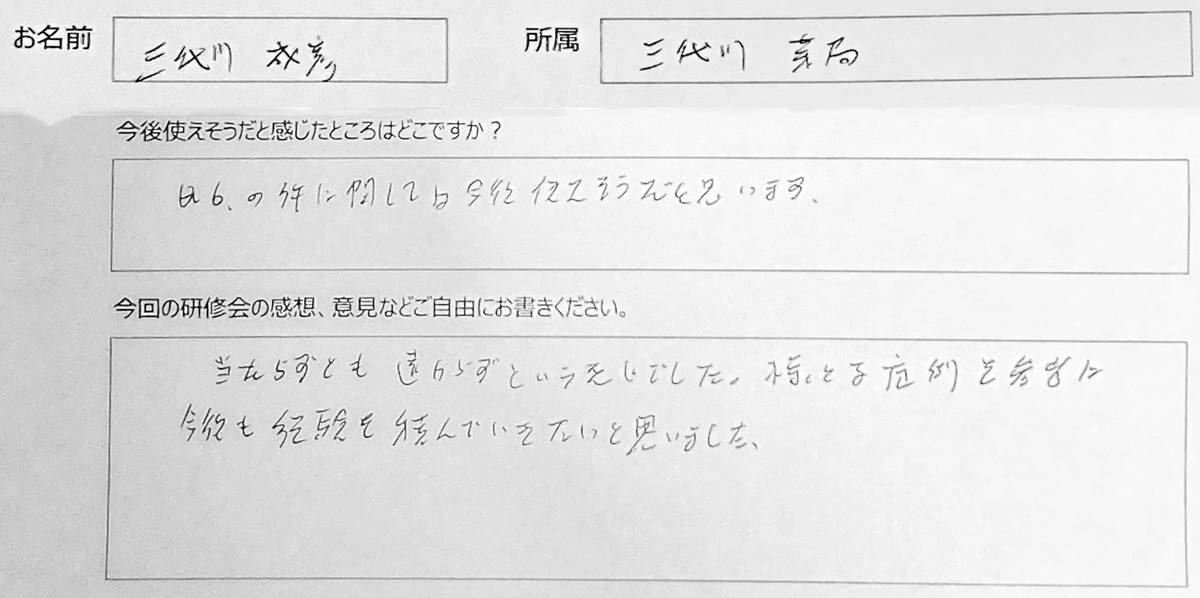 お名前 三代川 成彦 所属 三代川 薬局
今後使えそうだと感じたところはどこですか？
の件に関しては今後使えそうだと思います、
今回の研修会の感想、意見などご自由にお書きください。
当たらずとも遠からずという感じでした。様々な症例を参考に
今後も経験を積んでいきたいと思いました、